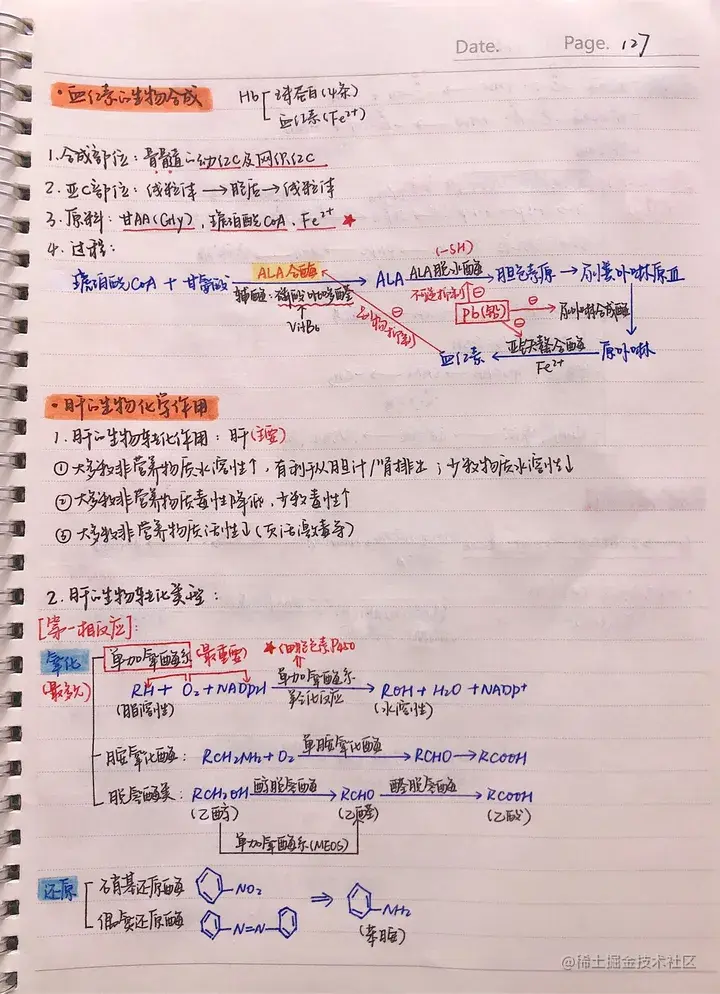 Date. Page. 127
·血红素的生物合成
Hb 珠蛋白(4条)
血红素(Fe²⁺)
1.合成部位:骨髓的幼红C及网织红C
2.亚C部位:线粒体→胞质→线粒体
3.原料:甘AA(Gly)、琥珀酰CoA、Fe²⁺ ★
4.过程:
(-SH)
琥珀酰CoA + 甘氨酸 ALA合酶 → ALA ALA脱水酶 → 胆色素原 → 尿卟啉原Ⅲ
辅酶:磷酸吡哆醛
不可逆抑制 ⊖
VitB6
Pb(铅) ⊖
⊖
⊖
血红素 ← 亚铁螯合酶 原卟啉
Fe²⁺
·肝的生物化学作用
1.肝的生物转化作用:肝(主要)
①大多数非营养物质水溶性↑,有利于从胆汁/肾排出;少数物质水溶性↓
②大多数非营养物质毒性降低,少数毒性↑
③大多数非营养物质活性↓(灭活激素等)
2.肝的生物转化类型:
[第一相反应]:
氧化 单加氧酶系(最重要) ★ 细胞色素P450
(最多见) RH + O₂ + NADPH 单加氧酶系 → ROH + H₂O + NADP⁺
(脂溶性) 羟化反应 (水溶性)
胺氧化酶: RCH₂NH₂ + O₂ 单胺氧化酶 → RCHO → RCOOH
脱氢酶类: RCH₂OH 醇脱氢酶 → RCHO 醛脱氢酶 → RCOOH
(乙醇) (乙醛) (乙酸)
单加氧酶系(MEOS)
还原 硝基还原酶 -NO₂ ⇒ -NH₂
偶氮还原酶 -N=N- (苯胺)
@稀土掘金技术社区